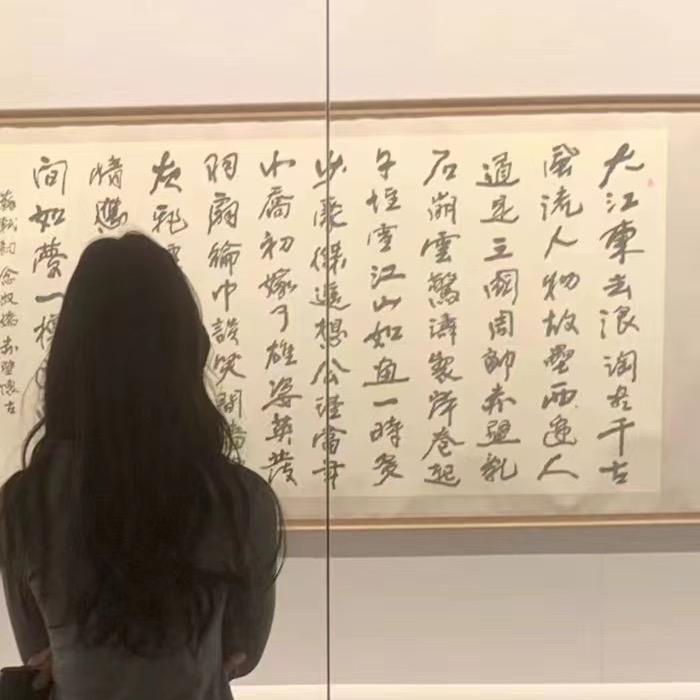 大江東去浪淘尽千古
風流人物故壘西邊人
道是三國周郎赤壁亂
石崩雲驚濤裂岸卷起
千堆雪江山如畫一時多
少豪傑遙想公瑾當年
小喬初嫁了雄姿英發
羽扇綸巾談笑間檣
灰飛
情應
間如夢一樽
蘇軾詞念奴嬌赤壁懷古